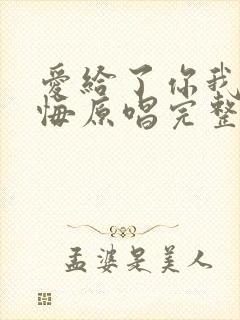 爱给了你我
悔原唱完整
孟婆是美人